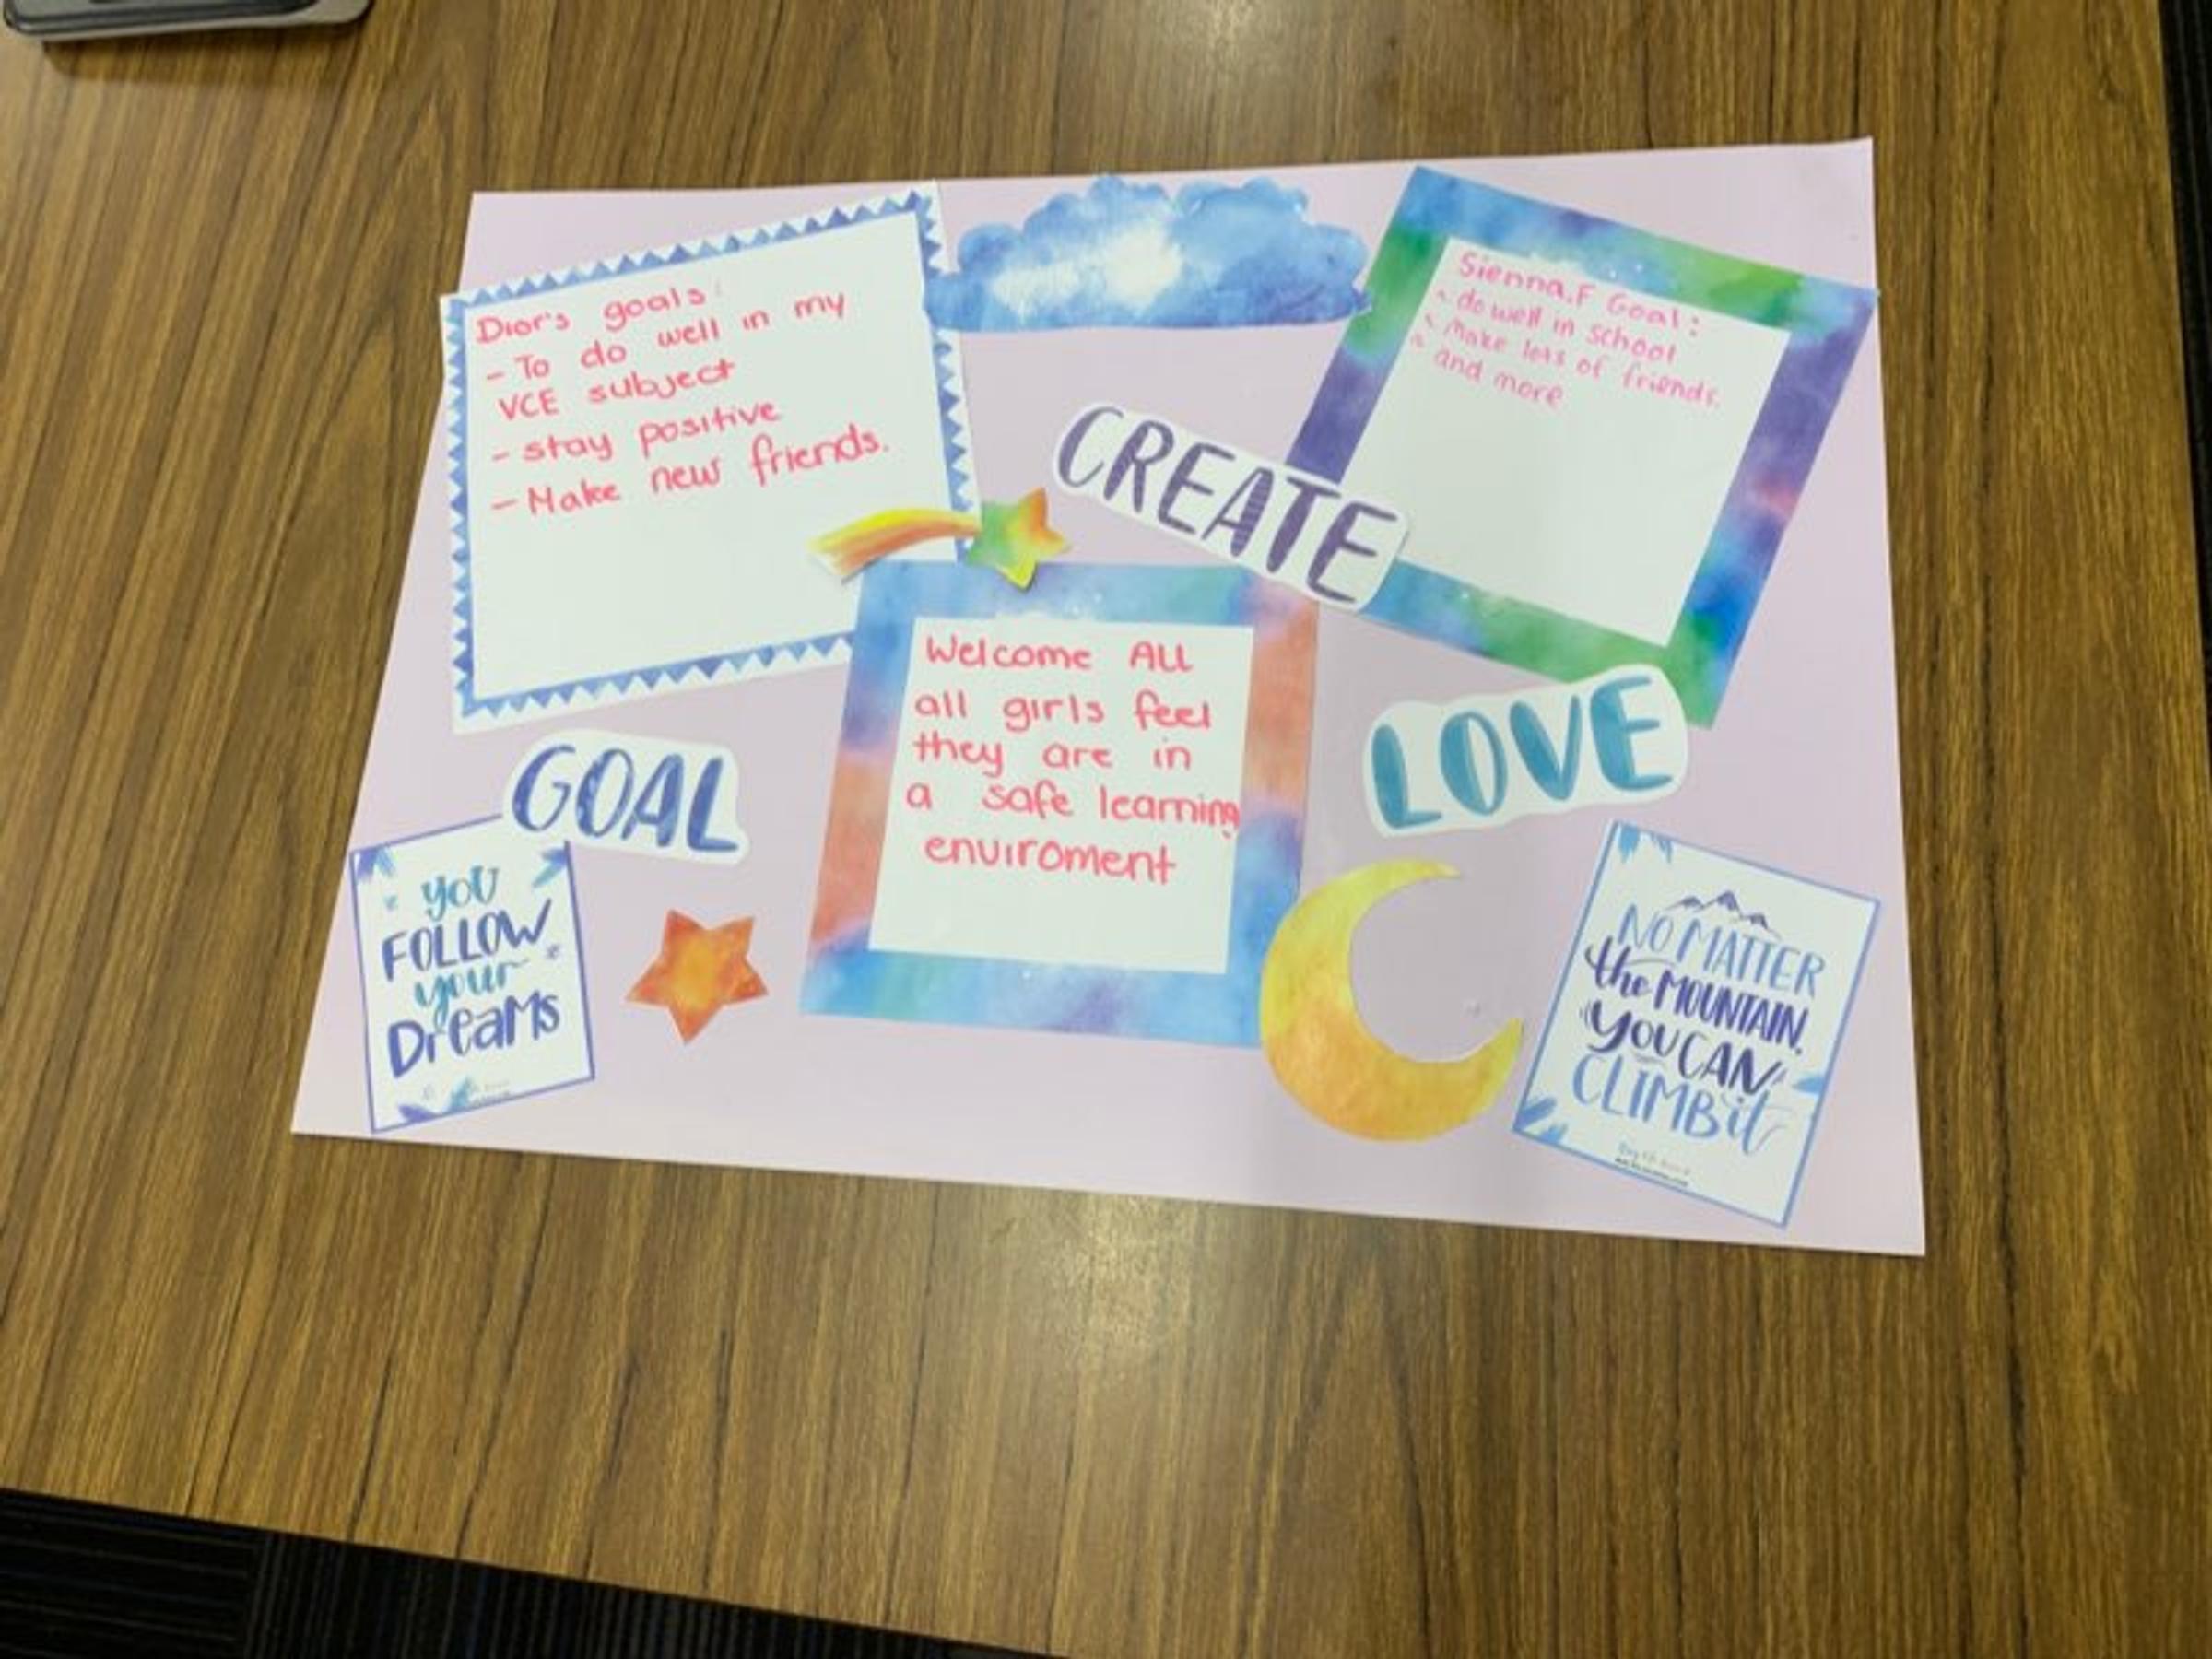 Dior's goals:
- To do well in my
VCE subject
- stay positive
- Make new friends.
Sienna.F Goal:
do well in school
Make lots of friends.
and more
CREATE
Welcome All
all girls feel
they are in
a safe learning
enviroment
GOAL
LOVE
you
FOLLOW
your
Dreams
NO MATTER
the MOUNTAIN,
YOU CAN
CLIMB it